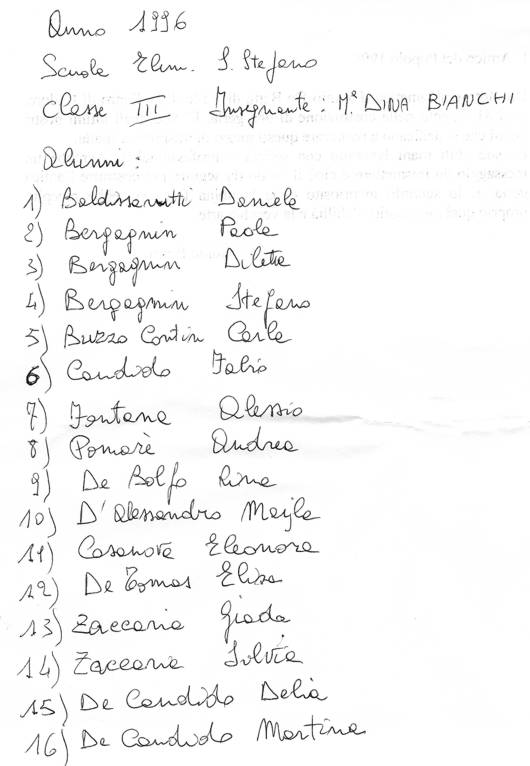 Anno 1996
Scuola Elem. S. Stefano
Classe III Insegnante : Mª DINA BIANCHI
Alunni :
1) Baldissarutti Daniele
2) Bergagnin Paola
3) Bergagnin Diletta
4) Bergagnin Stefano
5) Buzzo Contin Carla
6) Candido Fabio
7) Fontana Alessio
8) Pomarè Andrea
9) De Bolfo Rina
10) D'Alessandro Mayla
11) Casanova Eleonora
12) De Tomas Elisa
13) Zaccaria Giada
14) Zaccaria Silvia
15) De Candido Delia
16) De Candido Martina